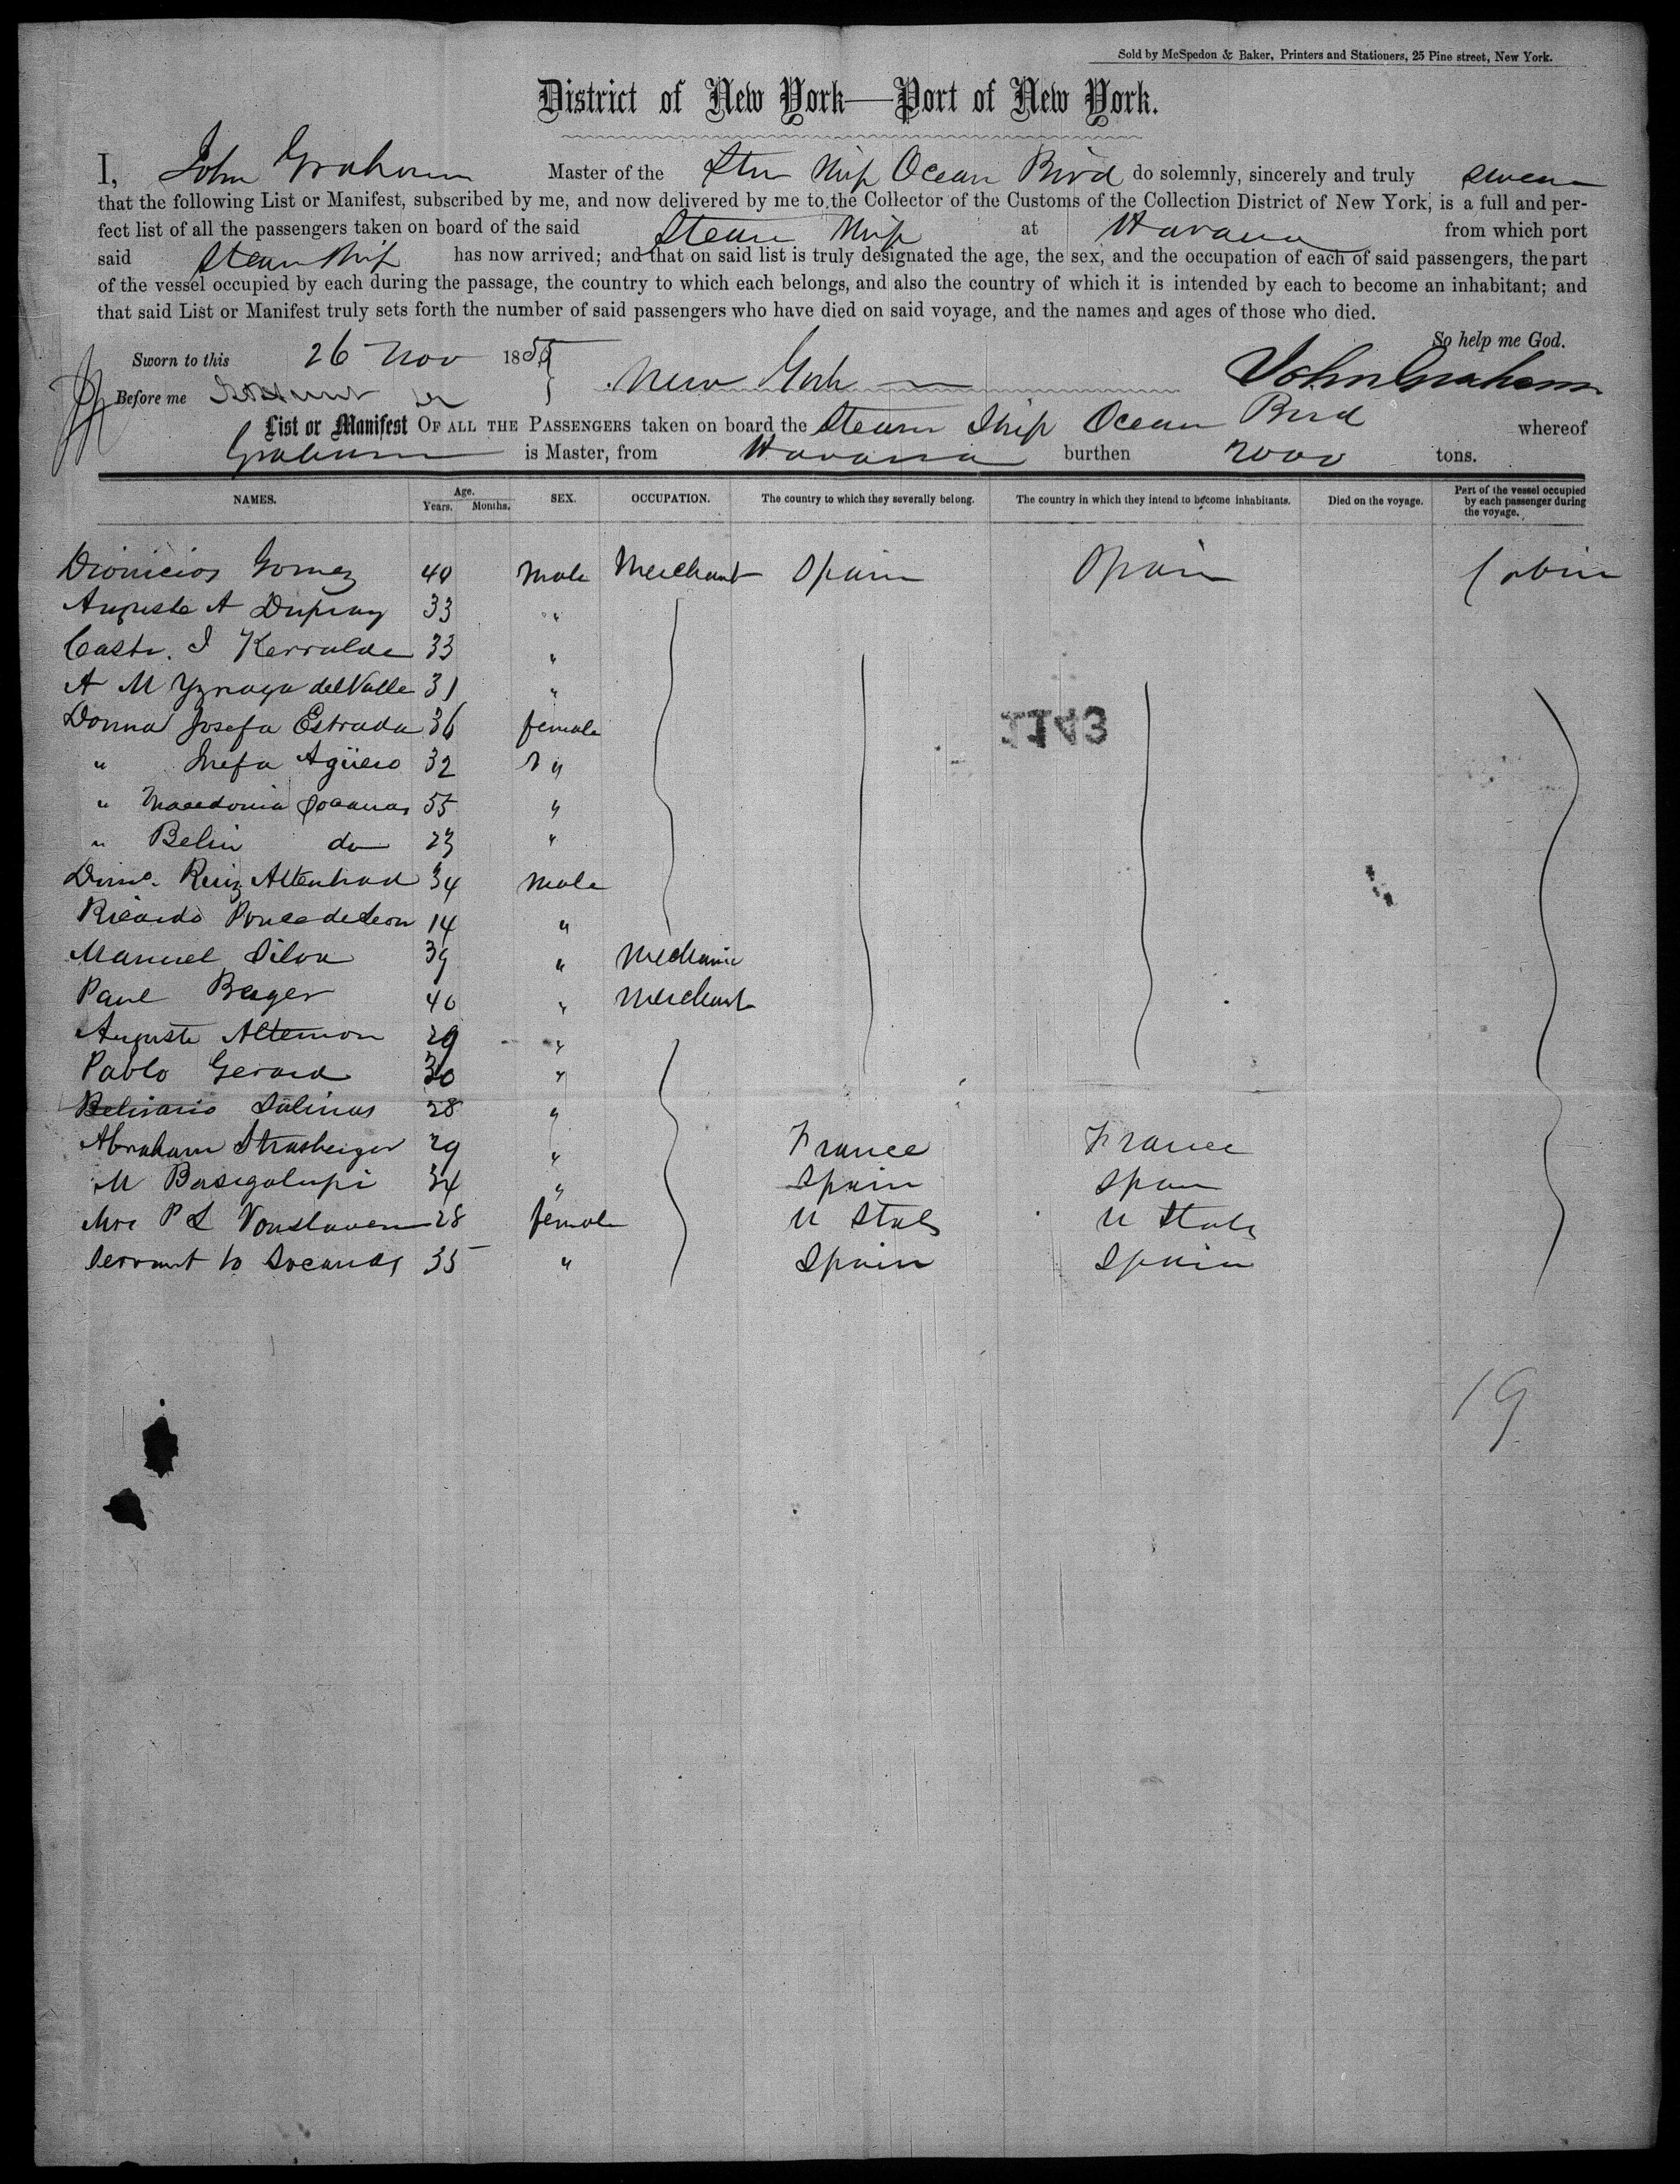 Sold by McSpedon & Baker, Printers and Stationers, 25 Pine street, New York.
District of New York—Port of New York.
I, John Graham Master of the Stm Ship Ocean Bird do solemnly, sincerely and truly swear
that the following List or Manifest, subscribed by me, and now delivered by me to the Collector of the Customs of the Collection District of New York, is a full and per-
fect list of all the passengers taken on board of the said Steam Ship at Havana from which port
said Steam Ship has now arrived; and that on said list is truly designated the age, the sex, and the occupation of each of said passengers, the part
of the vessel occupied by each during the passage, the country to which each belongs, and also the country of which it is intended by each to become an inhabitant; and
that said List or Manifest truly sets forth the number of said passengers who have died on said voyage, and the names and ages of those who died.
So help me God.
Sworn to this 26 Nov 1859
New York John Graham
Before me
List or Manifest OF ALL THE PASSENGERS taken on board the Steam Ship Ocean Bird whereof
Graham is Master, from Havana burthen 2000 tons.
NAMES. Age. Years. Months. SEX. OCCUPATION. The country to which they severally belong. The country in which they intend to become inhabitants. Died on the voyage. Part of the vessel occupied by each passenger during the voyage.
Dionicios Gomez 40 Male Merchant Spain Spain Cabin
Auguste A Dupray 33 "
Castr. I Kerralde 33 "
A M Yznaga del Valle 31 "
Donna Josefa Estrada 36 female
" Agüero 32 "
" Macedonia 55 "
" Belin do 23 "
Ruiz 34 Male
Ricardo Ponce de Leon 14 "
Manuel Silva 39 " Mechanic
Paul Berger 40 " Merchant
Auguste Altemon 29 "
Pablo Gerard 30 "
Belisario Salinas 28 "
Abraham Strasberger 29 " France France
M Basigalupi 34 " Spain Spain
Mrs P L 28 female U States U States
Servant to Socarras 35 " Spain Spain
1143
19